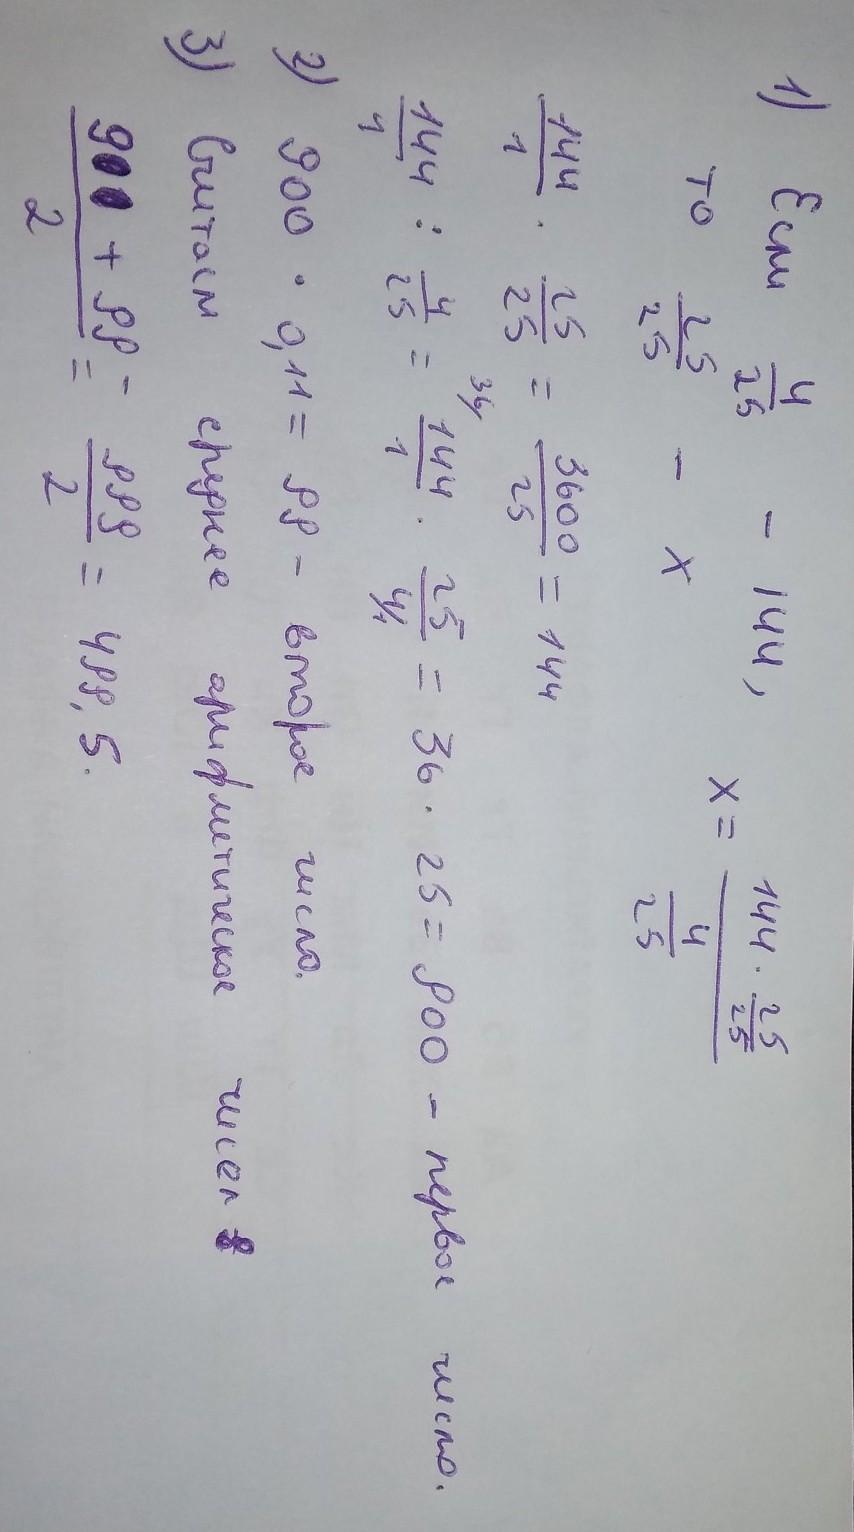 1) Если 4/25 - 144, x = (144 · 25/25) / (4/25)
то 25/25 - x
144/1 · 25/25 = 3600/25 = 144
144/1 : 4/25 = 144/1 · 25/4 = 36 · 25 = 900 - первое число.
2) 900 · 0,11 = 99 - второе число.
3) Считаем среднее арифметическое чисел
(900 + 99)/2 = 999/2 = 499,5.